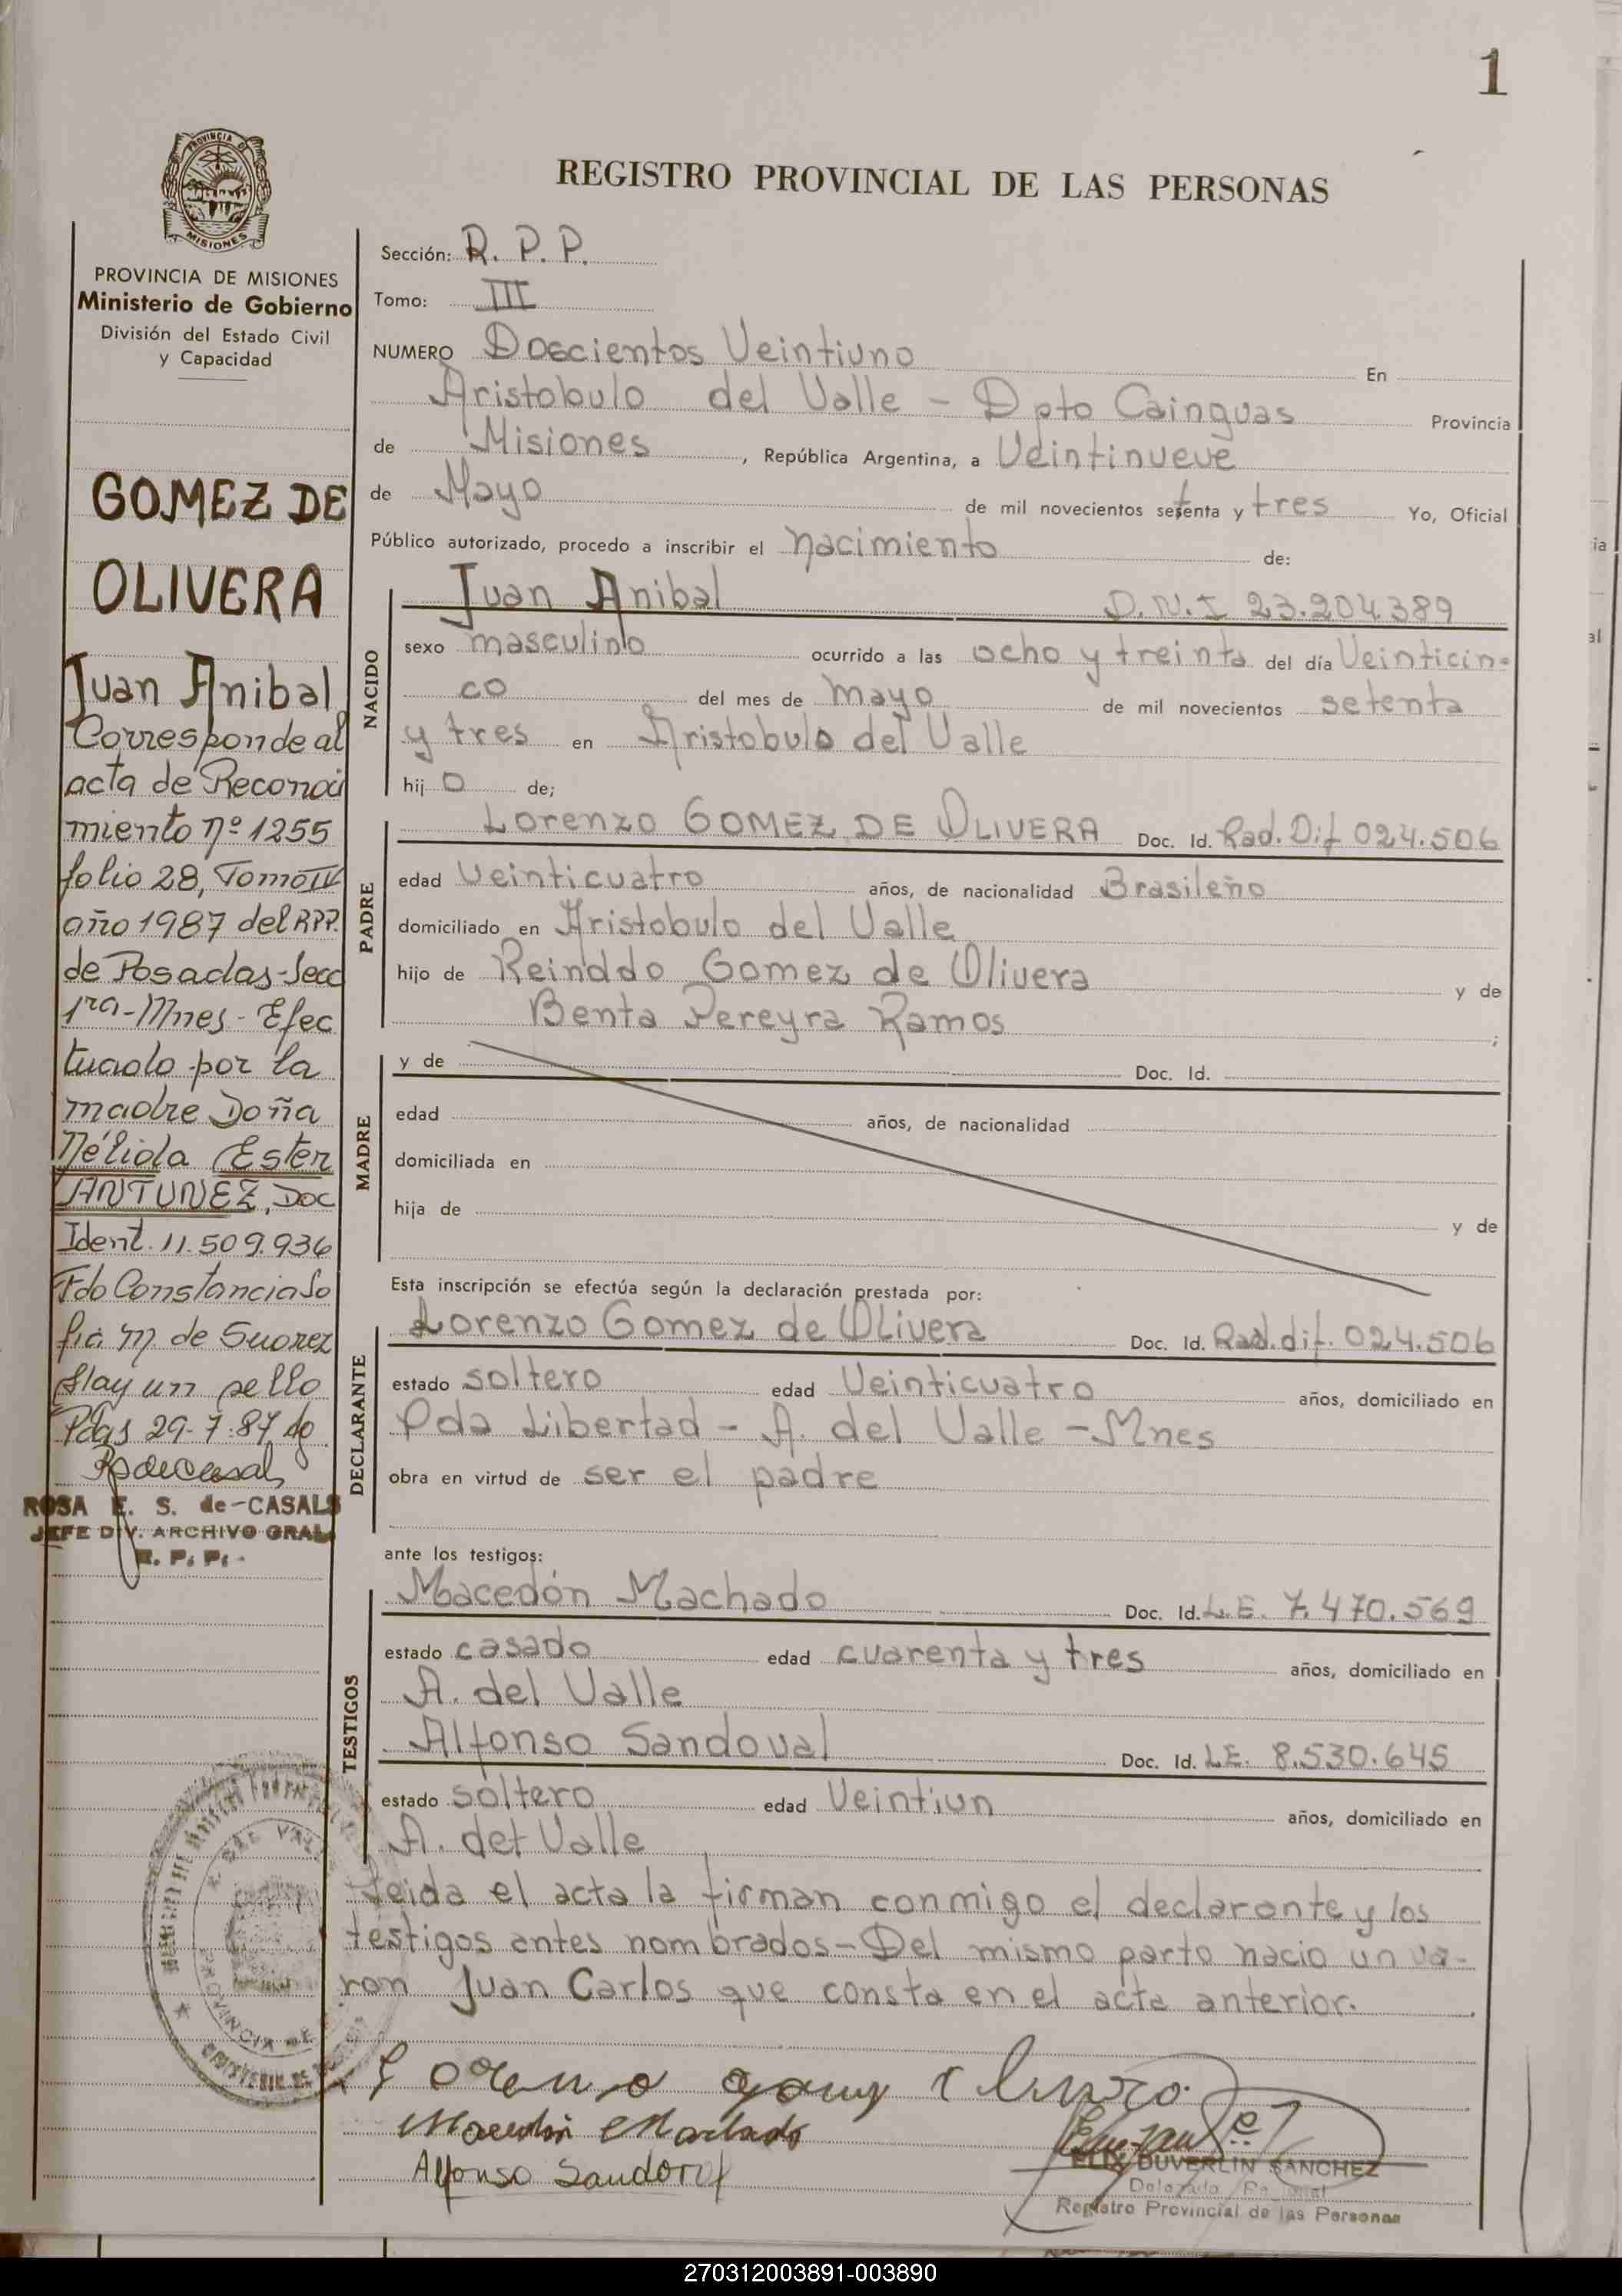 1
PROVINCIA DE
MISIONES
REGISTRO PROVINCIAL DE LAS PERSONAS
PROVINCIA DE MISIONES
Ministerio de Gobierno
División del Estado Civil
y Capacidad
GOMEZ DE
OLIVERA
Juan Anibal
Corresponde al
acta de Reconoci
miento nº 1255
folio 28, Tomo IV
año 1987 del RPP.
de Posadas-Secc
1ra-Mnes-Efec
tuado por la
madre Doña
Nélida Ester
ANTUNEZ, Doc
Ident. 11.509.936
Fdo Constancia So
fia M. de Suarez
Hay un sello
Pdas 29-7-87
ROSA E. S. de-CASALS
JEFE DIV. ARCHIVO GRAL.
R. P. P.
Sección: R. P. P.
Tomo: III
NUMERO Doscientos Veintiuno En
Aristobulo del Valle - Dpto Cainguas Provincia
de Misiones, República Argentina, a Veintinueve
de Mayo de mil novecientos setenta y tres Yo, Oficial
Público autorizado, procedo a inscribir el nacimiento de:
NACIDO
Juan Anibal D.N.I 23.204.389
sexo masculino ocurrido a las ocho y treinta del día Veinticin-
co del mes de mayo de mil novecientos setenta
y tres en Aristobulo del Valle
hijo de;
PADRE
Lorenzo GOMEZ DE OLIVERA Doc. Id. Rad. Dif 024.506
edad Veinticuatro años, de nacionalidad Brasileño
domiciliado en Aristobulo del Valle
hijo de Reinddo Gomez de Olivera y de
Benta Pereyra Ramos ;
MADRE
y de Doc. Id.
edad años, de nacionalidad
domiciliada en
hija de y de
Esta inscripción se efectúa según la declaración prestada por:
DECLARANTE
Lorenzo Gomez de Olivera Doc. Id. Rad. dif. 024.506
estado soltero edad Veinticuatro años, domiciliado en
Pda Libertad - A. del Valle - Mnes
obra en virtud de ser el padre
ante los testigos:
TESTIGOS
Macedón Machado Doc. Id. L.E. 7.470.569
estado casado edad cuarenta y tres años, domiciliado en
A. del Valle
Alfonso Sandoval Doc. Id. L.E. 8.530.645
estado soltero edad Veintiun años, domiciliado en
A. del Valle
Leida el acta la firman conmigo el declarante y los
testigos antes nombrados - Del mismo parto nacio un va-
ron Juan Carlos que consta en el acta anterior.
Macedón Machado
Alfonso Sandoval
FELIX DUVERLIN SANCHEZ
Registro Provincial de las Personas
270312003891-003890